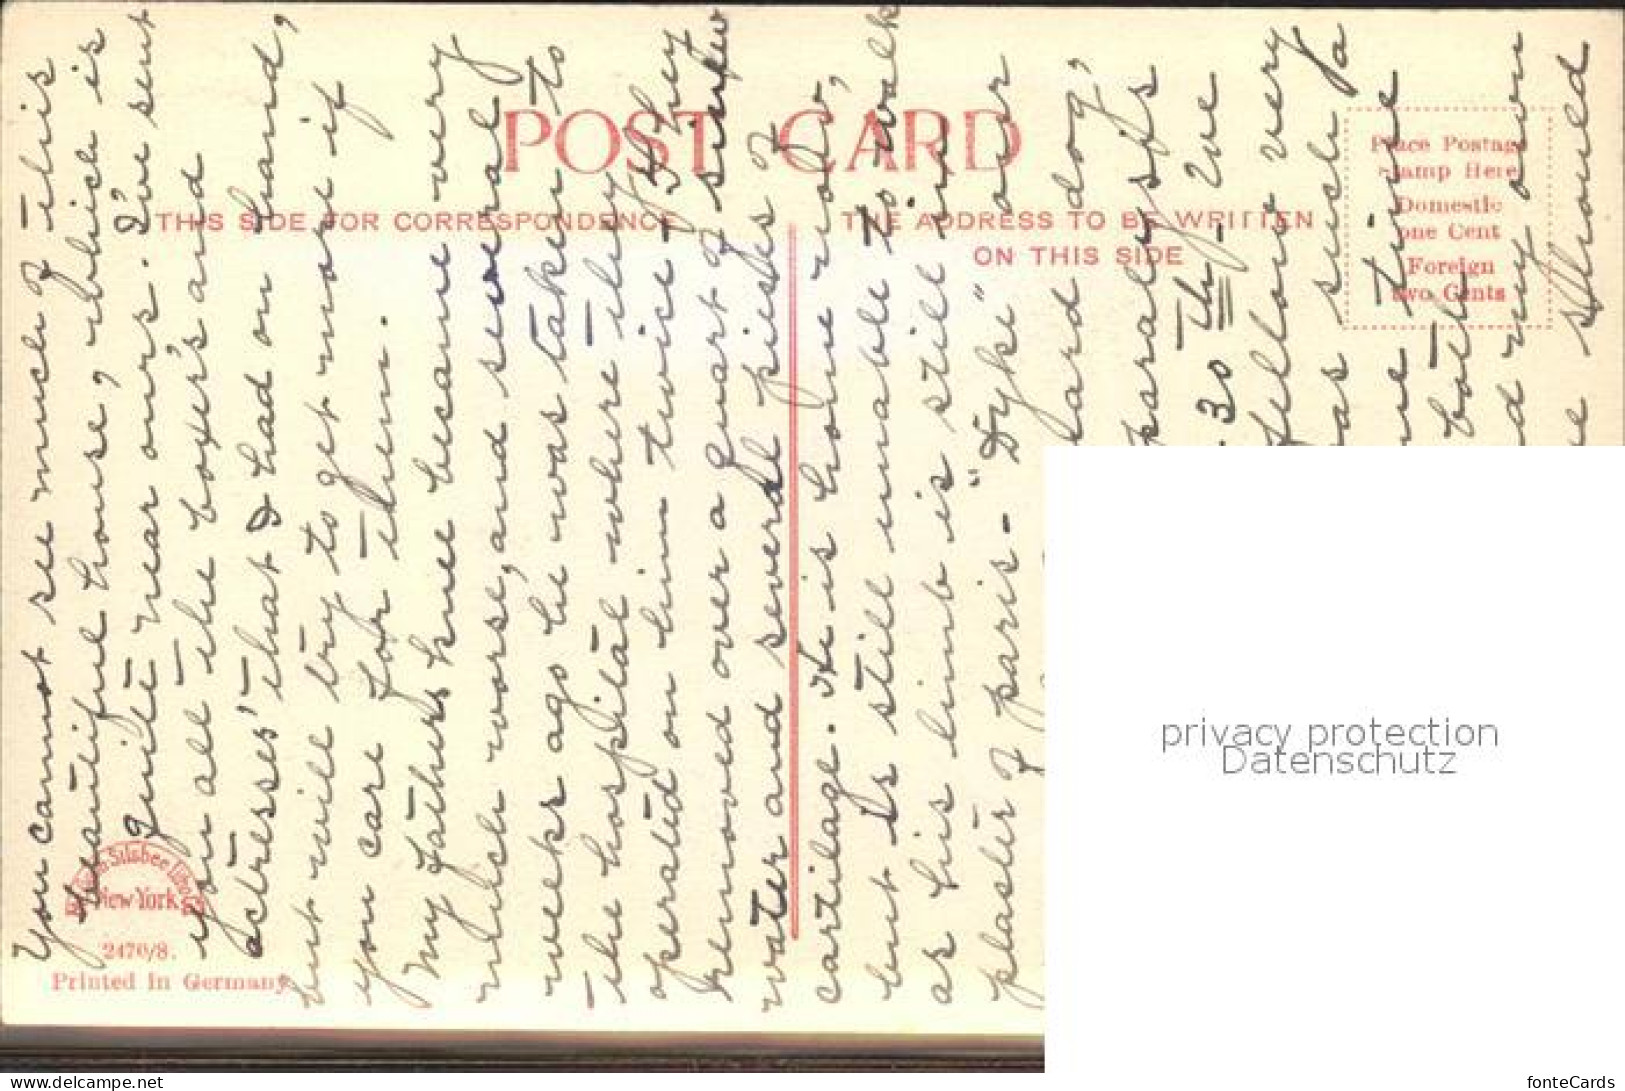 POST CARD
THIS SIDE FOR CORRESPONDENCE
THE ADDRESS TO BE WRITTEN
ON THIS SIDE
Place Postage
Stamp Here
Domestic
one Cent
Foreign
two Cents
You cannot see much of this
beautiful house, which is
quite near ours. I've sent
you all the boxer's and
actresses' that I had on hand,
but will try to get more if
you care for them.
My fathers knee became very
much worse, and several
weeks ago he was taken to
the hospital where they
operated on him twice. They
removed over a quart of
water and several pieces of
cartilage. He is home now,
but is still unable to walk
as his limb is still in
plaster of paris - "Dyke" our
ard dog,
paralysis
30th - we
fellow very
as such a
me time
both
d my own
e should
New York
2476/8.
Printed in Germany
privacy protection
Datenschutz
www.delcampe.net
fonteCards